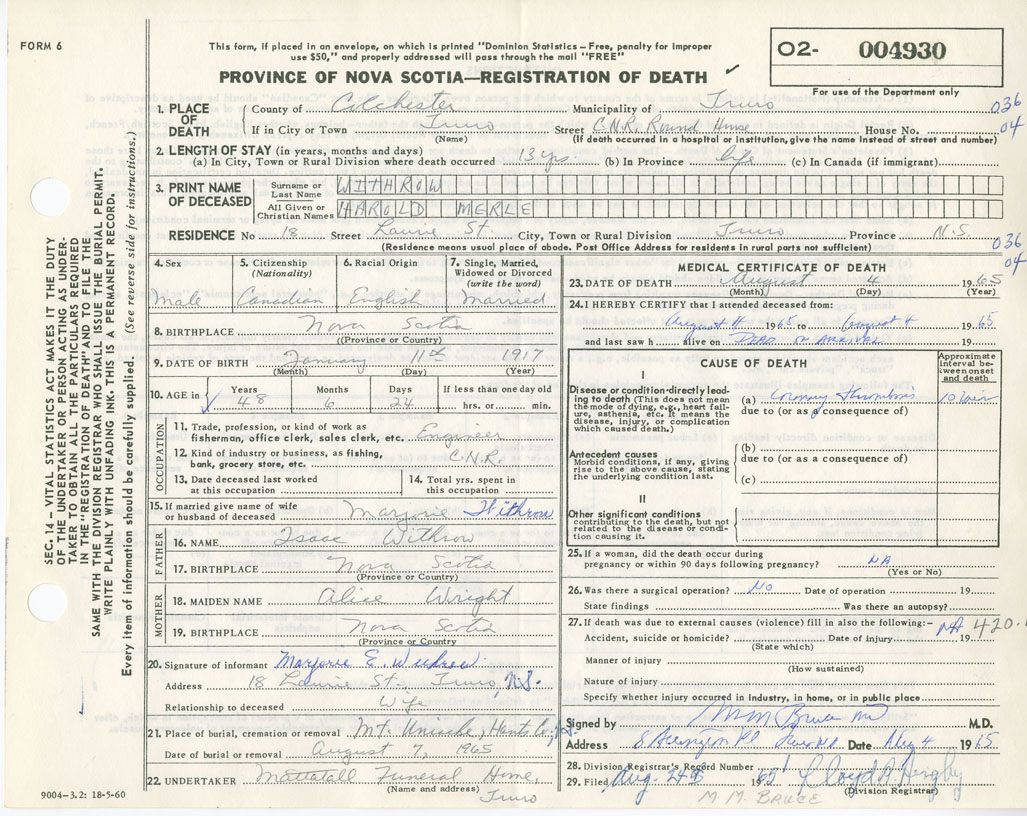 FORM 6
This form, if placed in an envelope, on which is printed "Dominion Statistics – Free, penalty for improper
use $50," and properly addressed will pass through the mail "FREE"
PROVINCE OF NOVA SCOTIA—REGISTRATION OF DEATH ✓
O2- 004930
For use of the Department only
036
04
1. PLACE OF DEATH
County of Colchester Municipality of Truro
If in City or Town Truro Street C.N.R. Round House House No.
(Name) (If death occurred in a hospital or institution, give the name instead of street and number)
2. LENGTH OF STAY (in years, months and days)
(a) In City, Town or Rural Division where death occurred 13 yrs. (b) In Province life (c) In Canada (if immigrant)
3. PRINT NAME OF DECEASED
Surname or Last Name WITHROW
All Given or Christian Names HAROLD MERLE
RESIDENCE No 18 Street Laurie St. City, Town or Rural Division Truro Province N.S.
(Residence means usual place of abode. Post Office Address for residents in rural parts not sufficient)
036
04
4. Sex
Male
5. Citizenship (Nationality)
Canadian
6. Racial Origin
English
7. Single, Married, Widowed or Divorced (write the word)
Married
8. BIRTHPLACE Nova Scotia
(Province or Country)
9. DATE OF BIRTH January 11th 1917
(Month) (Day) (Year)
10. AGE in Years 48 Months 6 Days 24 If less than one day old
hrs. or min.
OCCUPATION
11. Trade, profession, or kind of work as
fisherman, office clerk, sales clerk, etc. Engineer
12. Kind of industry or business, as fishing,
bank, grocery store, etc. C.N.R.
13. Date deceased last worked
at this occupation
14. Total yrs. spent in
this occupation
15. If married give name of wife
or husband of deceased Marjorie Withrow
FATHER
16. NAME Isaac Withrow
17. BIRTHPLACE Nova Scotia
(Province or Country)
MOTHER
18. MAIDEN NAME Alice Wright
19. BIRTHPLACE Nova Scotia
(Province or Country
20. Signature of informant Marjorie E. Withrow
Address 18 Laurie St. Truro, N.S.
Relationship to deceased Wife
21. Place of burial, cremation or removal Mt. Uniacke, Hants Co.,
Date of burial or removal August 7, 1965
22. UNDERTAKER Mattatall Funeral Home,
(Name and address) Truro
9004–3.2: 18-5-60
MEDICAL CERTIFICATE OF DEATH
23. DATE OF DEATH August 4 1965
(Month) (Day) (Year)
24. I HEREBY CERTIFY that I attended deceased from:
August 4 1965 to August 4 1965
and last saw h alive on DEAD ON ARRIVAL 19
CAUSE OF DEATH
Approximate interval between onset and death
I
Disease or condition-directly leading to death (This does not mean the mode of dying, e.g., heart failure, asthenia, etc. It means the disease, injury, or complication which caused death.)
(a) Coronary thrombosis 10 min
due to (or as a consequence of)
Antecedent causes
Morbid conditions, if any, giving rise to the above cause, stating the underlying condition last.
(b)
due to (or as a consequence of)
(c)
II
Other significant conditions
contributing to the death, but not related to the disease or condition causing it.
25. If a woman, did the death occur during
pregnancy or within 90 days following pregnancy? NA
(Yes or No)
26. Was there a surgical operation? NO Date of operation 19
State findings Was there an autopsy?
27. If death was due to external causes (violence) fill in also the following:– NA 420.1
Accident, suicide or homicide? Date of injury 19
(State which)
Manner of injury
(How sustained)
Nature of injury
Specify whether injury occurred in industry, in home, or in public place
Signed by M M Bruce MD M.D.
Address Date Aug 4 1965
28. Division Registrar's Record Number
29. Filed Aug. 24th 1965 Lloyd
(Division Registrar)
M. M. BRUCE
SEC. 14 – VITAL STATISTICS ACT MAKES IT THE DUTY
OF THE UNDERTAKER OR PERSON ACTING AS UNDER-
TAKER TO OBTAIN ALL THE PARTICULARS REQUIRED
IN THE "REGISTRATION OF DEATH" AND TO FILE THE
SAME WITH THE DIVISION REGISTRAR WHO SHALL ISSUE THE BURIAL PERMIT.
WRITE PLAINLY WITH UNFADING INK–THIS IS A PERMANENT RECORD.
Every item of information should be carefully supplied. (See reverse side for instructions.)